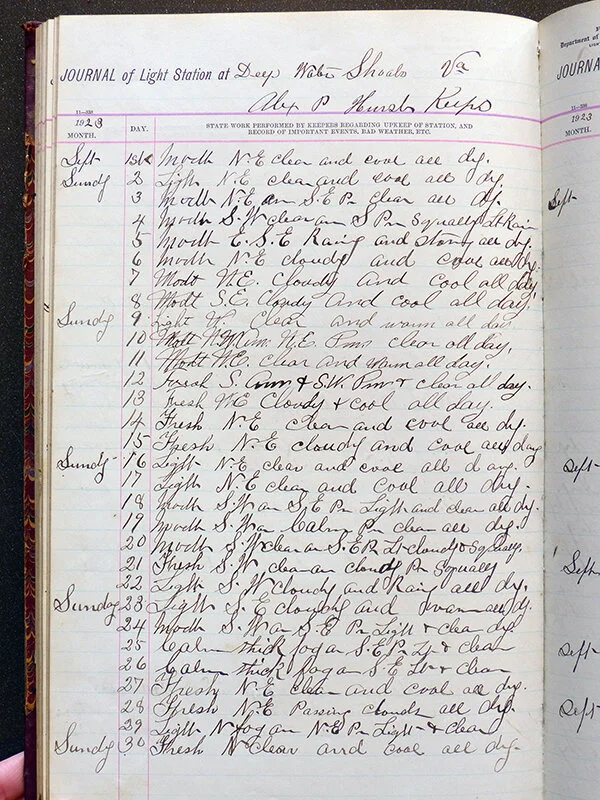 JOURNAL of Light Station at Deep Water Shoals Va
Alex P Hurst Keeper
11—338
1923
MONTH. DAY. STATE WORK PERFORMED BY KEEPERS REGARDING UPKEEP OF STATION, AND RECORD OF IMPORTANT EVENTS, BAD WEATHER, ETC.
Sept 1st Modth N.E clear and cool all dy.
Sundy 2 Ligh N.E clear and cool all dy
3 Modth N.E am S.E Pm clear all dy.
4 Modth S.W clear am S Pm Squally Lt Rain
5 Modth E.S.E Raing and Stormy all dy.
6 Modth N.E cloudy and cool all dy.
7 Modt N.E. Cloudy and cool all day.
8 Modt S.E. Cloudy and cool all day,
Sundy 9 Light W. Clear and warm all day
10 Modt N.W. am. N.E. Pm. clear all day.
11 Modt N.E. clear and warm all day.
12 Fresh S. am & S.W. Pm & clear all day.
13 Fresh N.E Cloudy & Cool all day.
14 Fresh N.E clear and cool all dy.
15 Fresh N.E cloudy and cool all day
Sundy 16 Light N.E clear and cool all day.
17 Light N.E clear and Cool all day.
18 Modth S.W am S.E P Light and clear all dy.
19 Modth S.W am Calm Pm clear all dy.
20 Modth S.W clear am S.E Pm Lt cloudy & Squally
21 Fresh S.W clear am cloudy Pm Squally
22 Light S.W Cloudy and Raing all dy.
Sunday 23 Light S.E cloudy and warm all dy.
24 Modth S.W am S.E Pm Light & clear dy.
25 Calm thick fog am S.E P. Lt & clear
26 Calm thick fog am S E Lt & clear
27 Fresh N.E clear and cool all dy.
28 Fresh N.E Passing clouds all dy.
29 Light N fog am N.E P Light & clear
Sundy 30 Fresh N clear and cool all dy.
Department of
JOURNA
11—338
1923
MONTH.
Sept
Sept
Sept
Sept
Sept